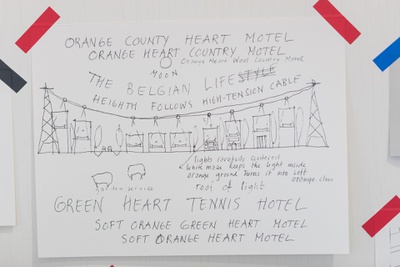 ORANGE COUNTY HEART MOTEL
ORANGE HEART COUNTRY MOTEL
Orange Heart West Country Motel
MOON
THE BELGIAN LIFESTYLE
HEIGHTH FOLLOWS HIGH-TENSION CABLE
lights carefully
white moon keeps the light inside
orange ground turns it into soft
orange
roof of light
garden service
GREEN HEART TENNIS HOTEL
SOFT ORANGE GREEN HEART MOTEL
SOFT ORANGE HEART MOTEL